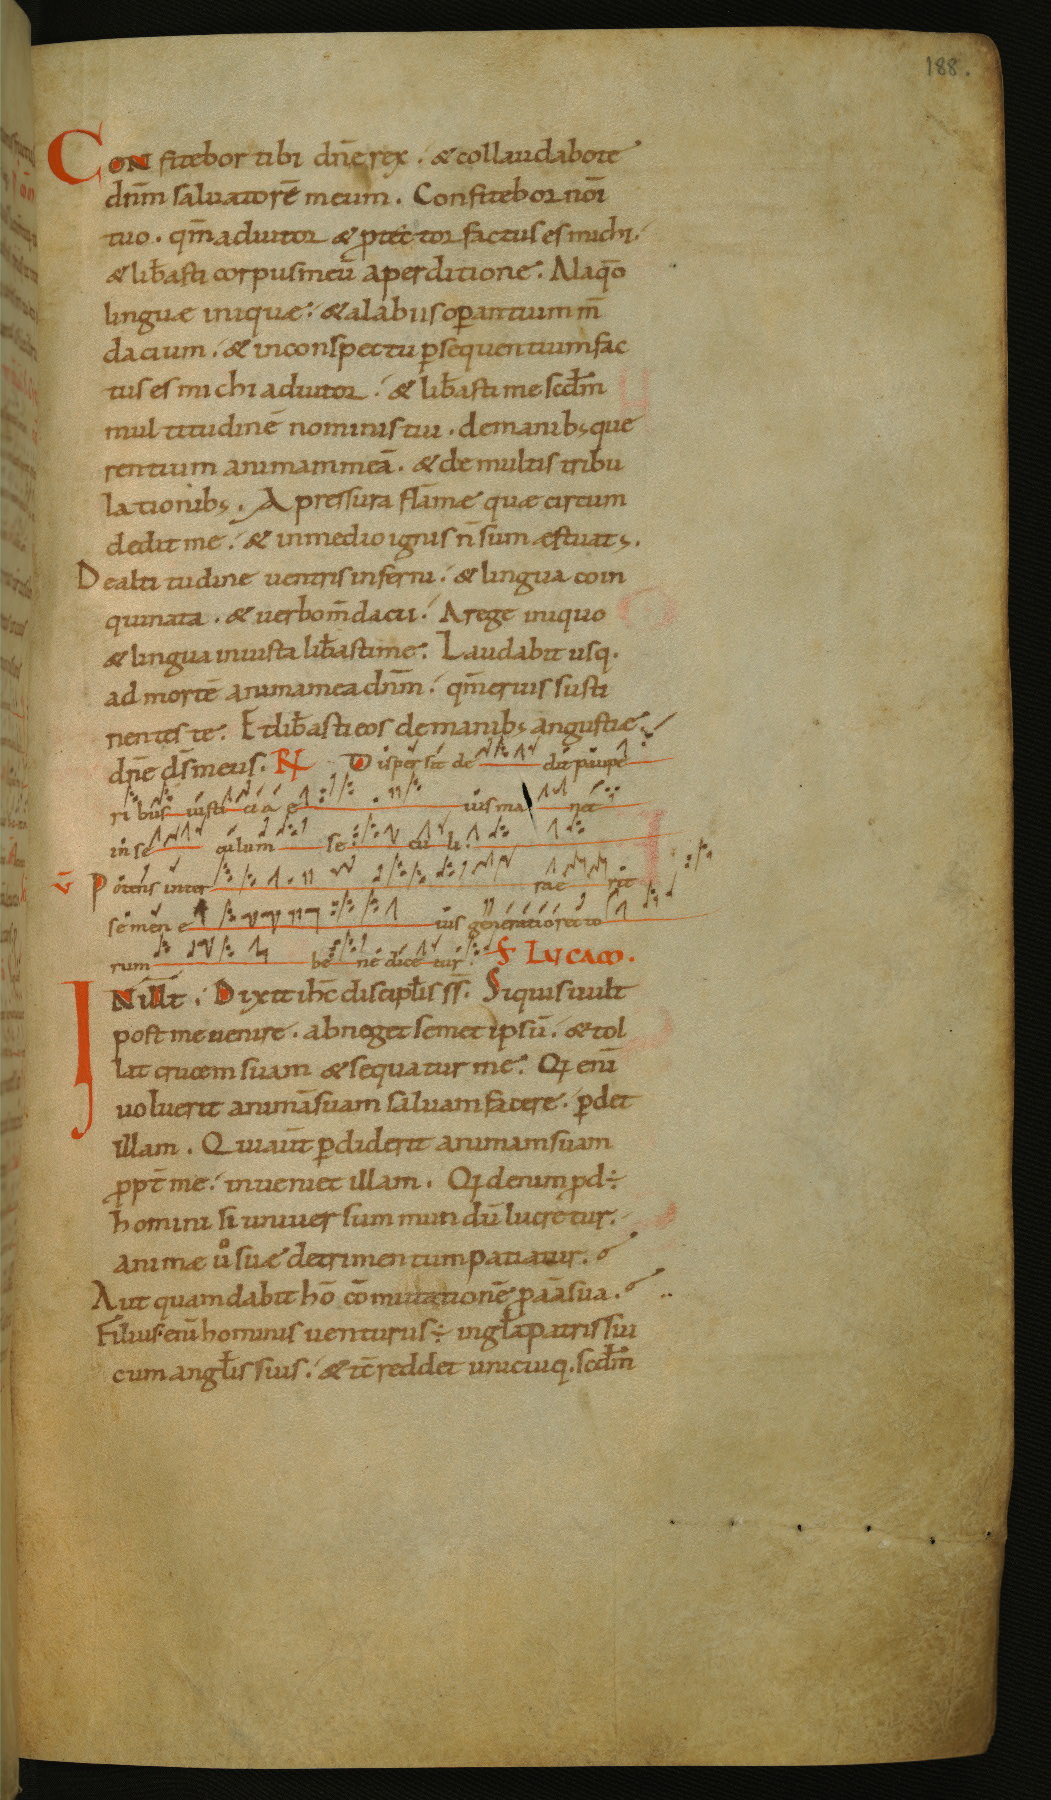 188.
CON fitebor tibi dn̄e rex . & collaudabo te
dn̄m saluatorē meum . Confitebor nōi
tuo . qm̄ adiutor & ꝓtector factus es michi .
& lib̄asti corpus meū a perditione . A laqō
linguæ iniquæ . & a labiis oꝑantium m̄
dacium . & in conspectu ꝑsequentium fac
tus es michi adiutor . & lib̄asti me scd̄m
multitudinē nominis tui . de manib; que
rentium animam meā . & de multis tribu
lationib; . A pressura flāmæ quæ circum
dedit me . & in medio ignis n̄ sum æstuat; .
De altitudine uentris inferni . & lingua coin
quinata . & uerbo m̄dacii . A rege iniquo
& lingua iniusta lib̄asti me . Laudabit usq.
ad mortē anima mea dn̄m . qm̄ eruis susti
nentes te . Et lib̄asti eos de manib; angustiæ .
dn̄e ds̄ meus . R Dispersit de dit paupe
ri bus iusti ci a e ius ma net
in se culum se cu li .
V̄ Potens in ter ra e rit
semen e ius generatio recto
rum be ne dice tur . S LUCAM .
IN illt̄ . Dixit ihc̄ discipłis ss̄ . Si quis uult
post me uenire . abneget semet ipsū . & tol
lat crucem suam & sequatur me . Q enī
uoluerit animā suam saluam facere . ꝑdet
illam . Qui aūt ꝑdiderit animam suam
ꝓpt̄ me . inueniet illam . Qd enim ꝓd÷
homini si uniuersum mundū lucretur .
animæ uº suæ detrimentum patiatur .
Aut quam dabit hō cōmutationē ꝓ aīa sua .
Filius enī hominis uenturus ÷ in głа patris sui
cum angłis suis . & tc̄ reddet unicuiq. scd̄m